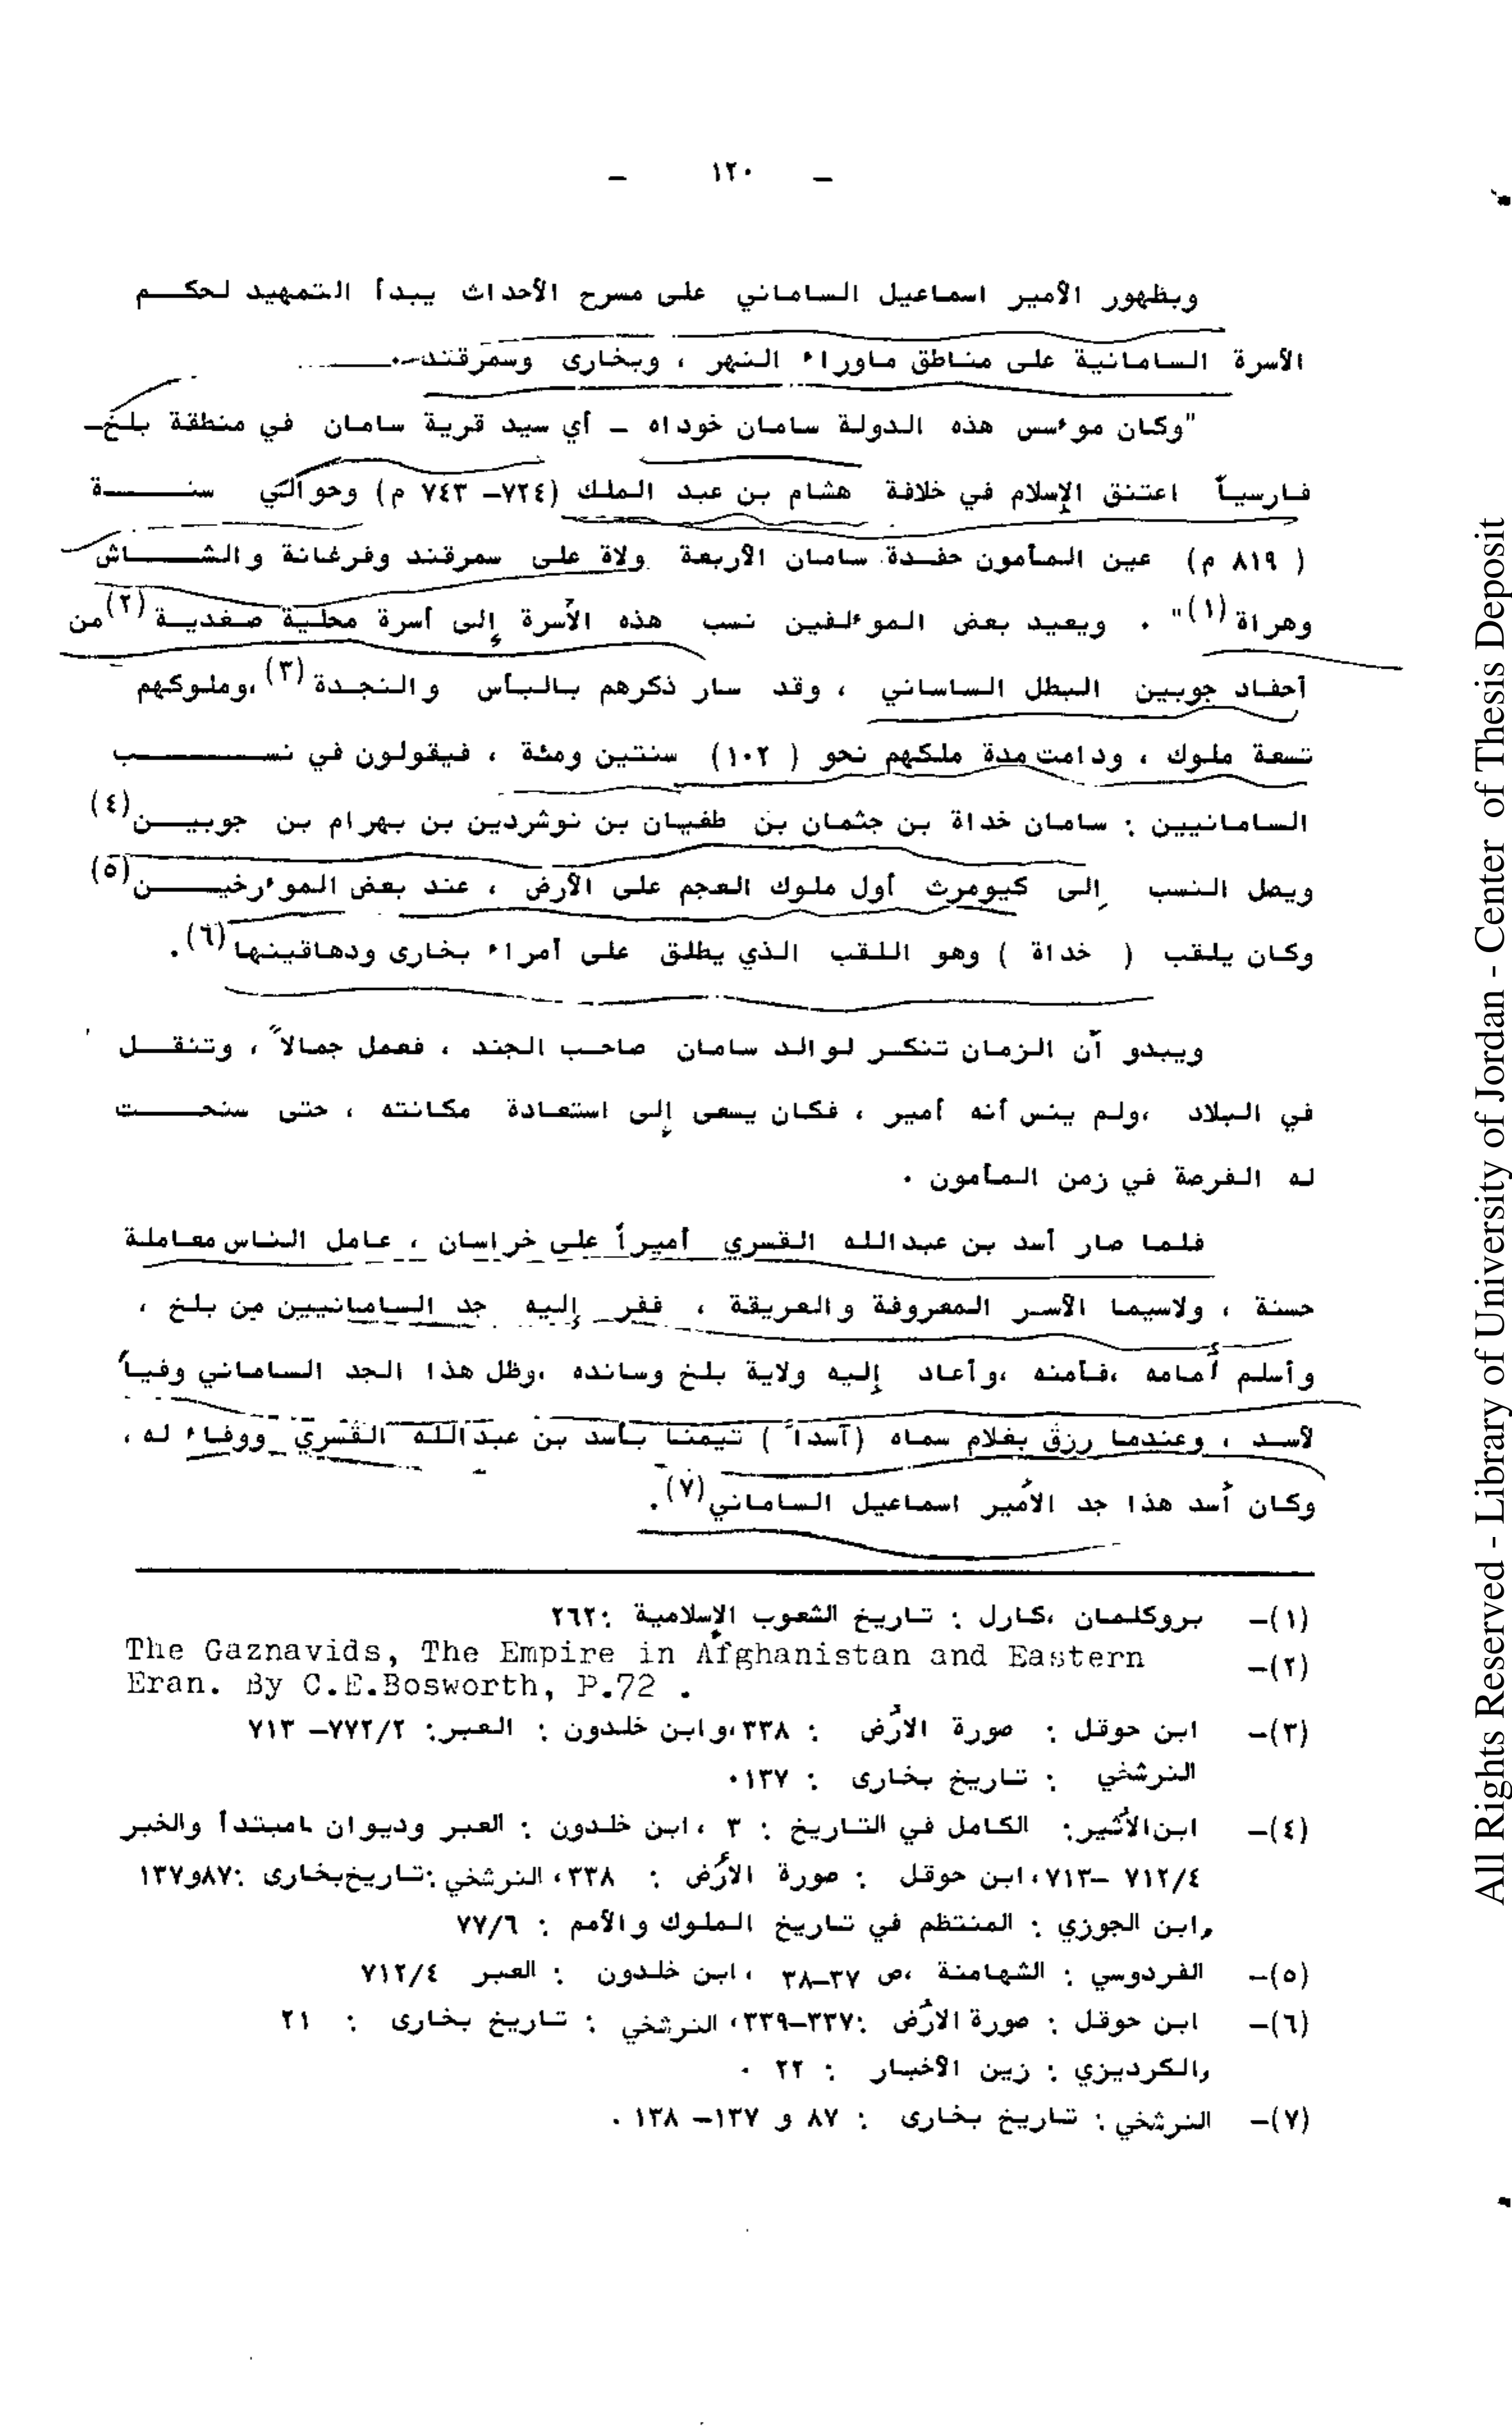 - ١٢٠ -
وبظهور الأمير اسماعيل الساماني على مسرح الأحداث يبدأ التمهيد لحكم
الأسرة السامانية على مناطق ماوراء النهر ، وبخارى وسمرقند .
"وكان موءسس هذه الدولة سامان خوداه - أي سيد قرية سامان في منطقة بلخ-
فارسياً اعتنق الإسلام في خلافة هشام بن عبد الملك (٧٢٤- ٧٤٣ م) وحوالي سنة
( ٨١٩ م) عين المأمون حفدة سامان الأربعة ولاة على سمرقند وفرغانة والشاش
وهراة(١)" . ويعيد بعض الموءلفين نسب هذه الأسرة إلى أسرة محلية صغدية(٢)من
أحفاد جوبين البطل الساساني ، وقد سار ذكرهم بالبأس والنجدة(٣)،وملوكهم
تسعة ملوك ، ودامت مدة ملكهم نحو ( ١٠٢) سنتين ومئة ، فيقولون في نسب
السامانيين : سامان خداة بن جثمان بن طغيان بن نوشردين بن بهرام بن جوبين(٤)
ويصل النسب إلى كيومرث أول ملوك العجم على الأرض ، عند بعض الموءرخين(٥)
وكان يلقب ( خداة ) وهو اللقب الذي يطلق على أمراء بخارى ودهاقينها(٦).
ويبدو أن الزمان تنكر لوالد سامان صاحب الجند ، فعمل جمالاً ، وتنقل
في البلاد ،ولم ينس أنه أمير ، فكان يسعى إلى استعادة مكانته ، حتى سنحت
له الفرصة في زمن المأمون .
فلما صار أسد بن عبدالله القسري أميراً على خراسان ، عامل الناس معاملة
حسنة ، ولاسيما الأسر المعروفة والعريقة ، ففر إليه جد السامانيين من بلخ ،
وأسلم أمامه ،فأمنه ،وأعاد إليه ولاية بلخ وسانده ،وظل هذا الجد الساماني وفياً
لأسد ، وعندما رزق بغلام سماه (آسداً ) تيمنا بأسد بن عبدالله القسري ووفاء له ،
وكان أسد هذا جد الأمير اسماعيل الساماني(٧).
(١)- بروكلمان ،كارل : تاريخ الشعوب الإسلامية :٢٦٢
(٢)- The Gaznavids, The Empire in Afghanistan and Eastern
Eran. By C.E.Bosworth, P.72 .
(٣)- ابن حوقل : صورة الأرض : ٣٣٨،وابن خلدون : العبر: ٧٧٢/٢- ٧١٣
النرشخي : تاريخ بخارى : ١٣٧.
(٤)- ابن الأثير: الكامل في التاريخ : ٣ ، ابن خلدون : العبر وديوان لمبتدأ والخبر
٧١٢/٤ -٧١٣، ابن حوقل : صورة الأرض : ٣٣٨، النرشخي :تاريخ بخارى :٨٧و١٣٧
وابن الجوزي : المنتظم في تاريخ الملوك والأمم : ٧٧/٦
(٥)- الفردوسي : الشهامنة ،ص ٣٧-٣٨ ، ابن خلدون : العبر ٧١٢/٤
(٦)- ابن حوقل : صورة الأرض :٣٣٧-٣٣٩، النرشخي : تاريخ بخارى : ٢١
والكرديزي : زين الأخبار : ٢٢ .
(٧)- النرشخي : تاريخ بخارى : ٨٧ و ١٣٧- ١٣٨ .
All Rights Reserved - Library of University of Jordan - Center of Thesis Deposit